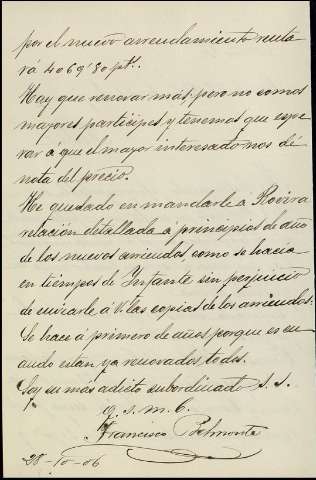 por el nuevo arrendamiento renta
rá 4069'80 pts.
Hay que renovar más; pero no somos
mayores participes y tenemos que espe
rar á que el mayor interesado nos dé
nota del precio.
He quedado en mandarle a Rovira
relación detallada á principios de año
de los nuevos arriendos como se hacia
en tiempos de Infante sin perjuicio
de enviarle á V. las copias de los arriendos.
Se hace á primero de años porque es cu
ando estan ya renovados todos.
Soy su más adicto subordinado s. s.
q. s. m. b.
Francisco Belmonte
28-10-06